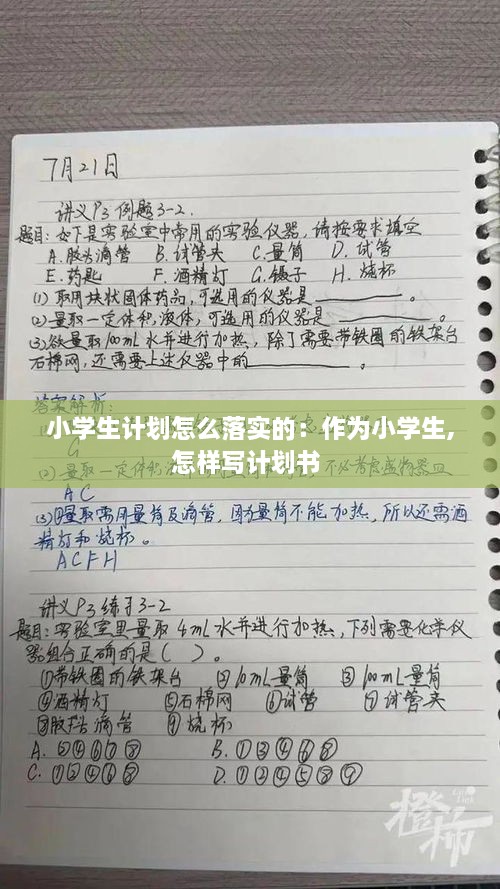 7月21日
讲义P3 例题3-2.
题目:如下是实验室中常用的实验仪器,请按要求填空
A.胶头滴管 B.试管夹 C.量筒 D.试管
E.药匙 F.酒精灯 G.镊子 H.烧杯
(1)取用块状固体药品,可选用的仪器是______。
(2)量取一定体积液体,可选用的仪器是______。
(3)欲量取100mL水并进行加热,除了需要带铁圈的铁架台
石棉网,还需要上述仪器中的______。
答案解析:
小学生计划怎么落实的:作为小学生,
G
怎样写计划书
(2)量取一定体积
A C
(3)量取需用量筒及滴管,因为量筒不能加热,所以还需酒
精灯和烧杯。
A C F H
讲义P3 练习3-2
题目:实验室里量取4mL水并进行加热,下列需要化学仪
器组合正确的是( )。
①带铁圈的铁架台 ②10mL量筒 ③100mL量筒
④酒精灯 ⑤石棉网 ⑥试管 ⑦试管夹
⑧胶头滴管 ⑨烧杯
A. ②④⑥⑦⑧ B. ①③④⑥⑧
C. ①②④⑥⑧ D. ①②④⑤⑧⑨
橙柿